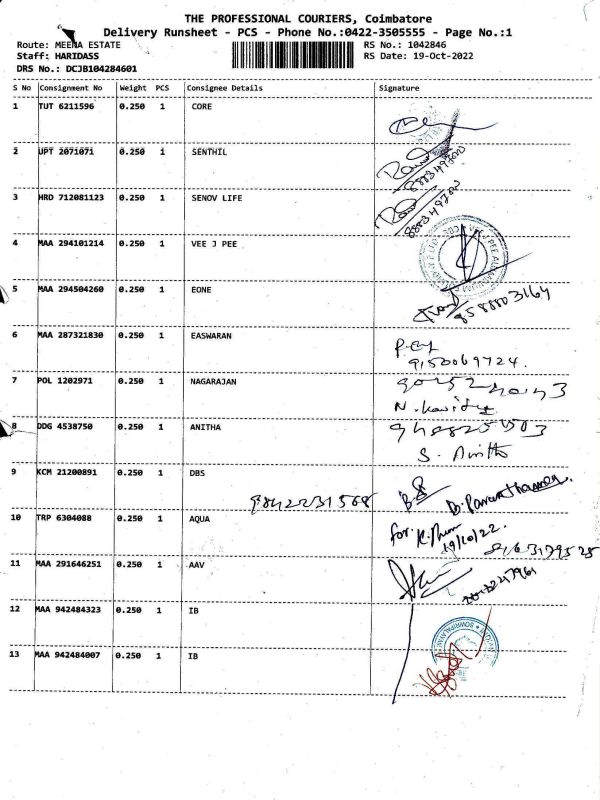 THE PROFESSIONAL COURIERS, Coimbatore
Delivery Runsheet - PCS - Phone No.:0422-3505555 - Page No.:1
Route: MEENA ESTATE RS No.: 1042846
Staff: HARIDASS RS Date: 19-Oct-2022
DRS No.: DCJB104284601
S No Consignment No Weight PCS Consignee Details Signature
1 TUT 6211596 0.250 1 CORE
2 UPT 2071071 0.250 1 SENTHIL
8883497000
3 HRD 712081123 0.250 1 SENOV LIFE
8883497000
4 MAA 294101214 0.250 1 VEE J PEE
5 MAA 294504260 0.250 1 EONE
9588803164
6 MAA 287321830 0.250 1 EASWARAN
9150069724.
7 POL 1202971 0.250 1 NAGARAJAN
8 DDG 4538750 0.250 1 ANITHA
9 KCM 21200891 0.250 1 DBS
9842231568
10 TRP 6304088 0.250 1 AQUA
for.
19/10/22.
11 MAA 291646251 0.250 1 AAV
12 MAA 942484323 0.250 1 IB
13 MAA 942484007 0.250 1 IB